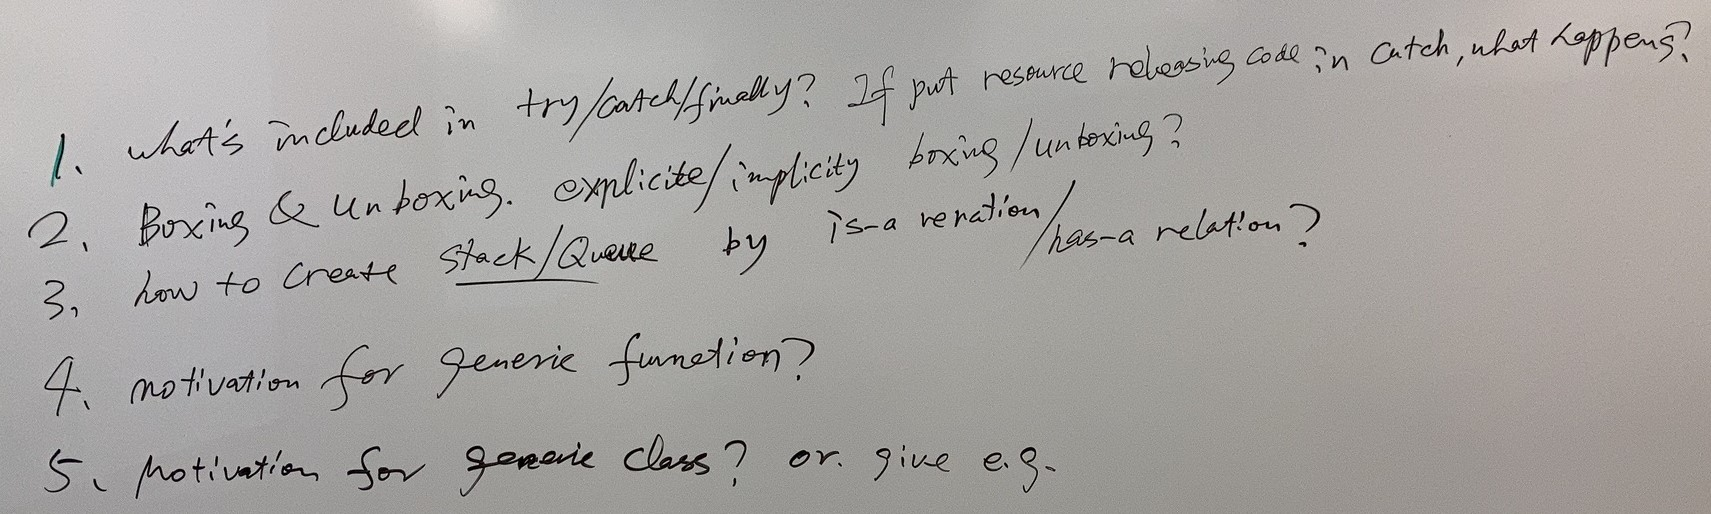 1. what's included in try/catch/finally? If put resource releasing code in catch, what happens?
2. Boxing & Unboxing. explicite/implicity boxing/unboxing?
3. how to create stack/Queue by is-a reration/has-a relation?
4. motivation for generic function?
5. Motivation for generic class? or. give e.g.